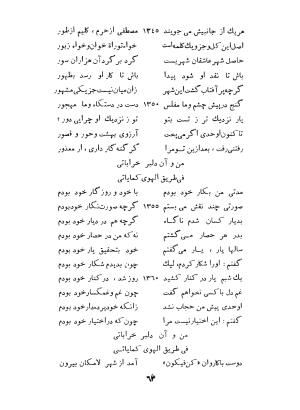 هریک از جانبیش می جویند ۱۳٤٥ مصطفی از حرم ، کلیم از طور
اصل این کل و جزو یک کلمه است خواه توراة خوان و خواه زبور
حاصل شهر عاشقان شهریست گرد بر گرد آن هزاران سور
باش تا نقد او شود پیدا باش تا کار او رسد بظهور
گرچه پر آفتاب گشت این شهر زان میان نیست جز یکی مشهور
گنج در پیش چشم و ما مفلس ۱۳۵۰ دست در دستگاه و ما مهجور
یار نزدیک تر ز تست بتو تو ز نزدیک او چرایی دور ؟
تا کنون اوحدی اگر می پخت آرزوی بهشت و حور و قصور
رفتنی رفت ، بعد ازین تو و مرا گر گنه کار داری ، ار معذور
من و آن دلبر خراباتی
فی طریق الهوی کمایاتی
مدتی من بکار خود بودم با خود و روزگار خود بودم
صورتی چند نقش می بستم ۱۳۵۵ گرچه صورت نگار خود بودم
بدیار کسان شدم ناگاه گرچه هم در دیار خود بودم
بدر هر حصار می گشتم نه که من در حصار خود بودم
سالها یار ، یار می گفتم خود بتحقیق یار خود بودم
گفتم : اورا شکار کردم ، لیک چون بدیدم شکار خود بودم
یک شبم یار در کنار کشید ۱۳۶۰ روز شد ، در کنار خود بودم
غم دل با کسی نخواهم گفت چون غم و غمگسار خود بودم
اوحدی پیش من حجاب نشد زانکه خود پرده دار خود بودم
گفتم : این اختیار نیست مرا چون که در اختیار خود بودم
من و آن دلبر خراباتی
فی طریق الهوی کمایاتی
دوست با کاروان «کن فیکون» آمد از شهر لامکان بیرون